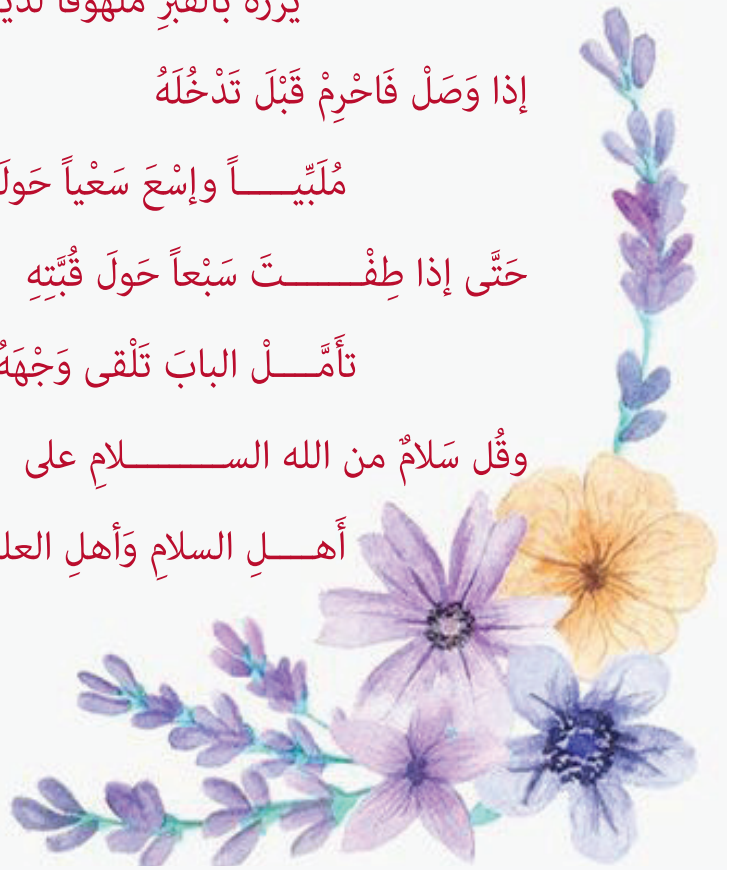 يزره بالقبرِ ملهوفاً
إذا وَصَلْ فَاحْرِمْ قَبْلَ تَدْخُلَهُ
مُلَبِّيـــــاً وإسْعَ سَعْياً حَولَ
حَتَّى إذا طِفْـــــــتَ سَبْعاً حَولَ قُبَّتِهِ
تأَمَّـــــلْ البابَ تَلْقى وَجْهَهُ
وقُل سَلامٌ من الله الســـــــــلامِ على
أَهـــــلِ السلامِ وَأهلِ